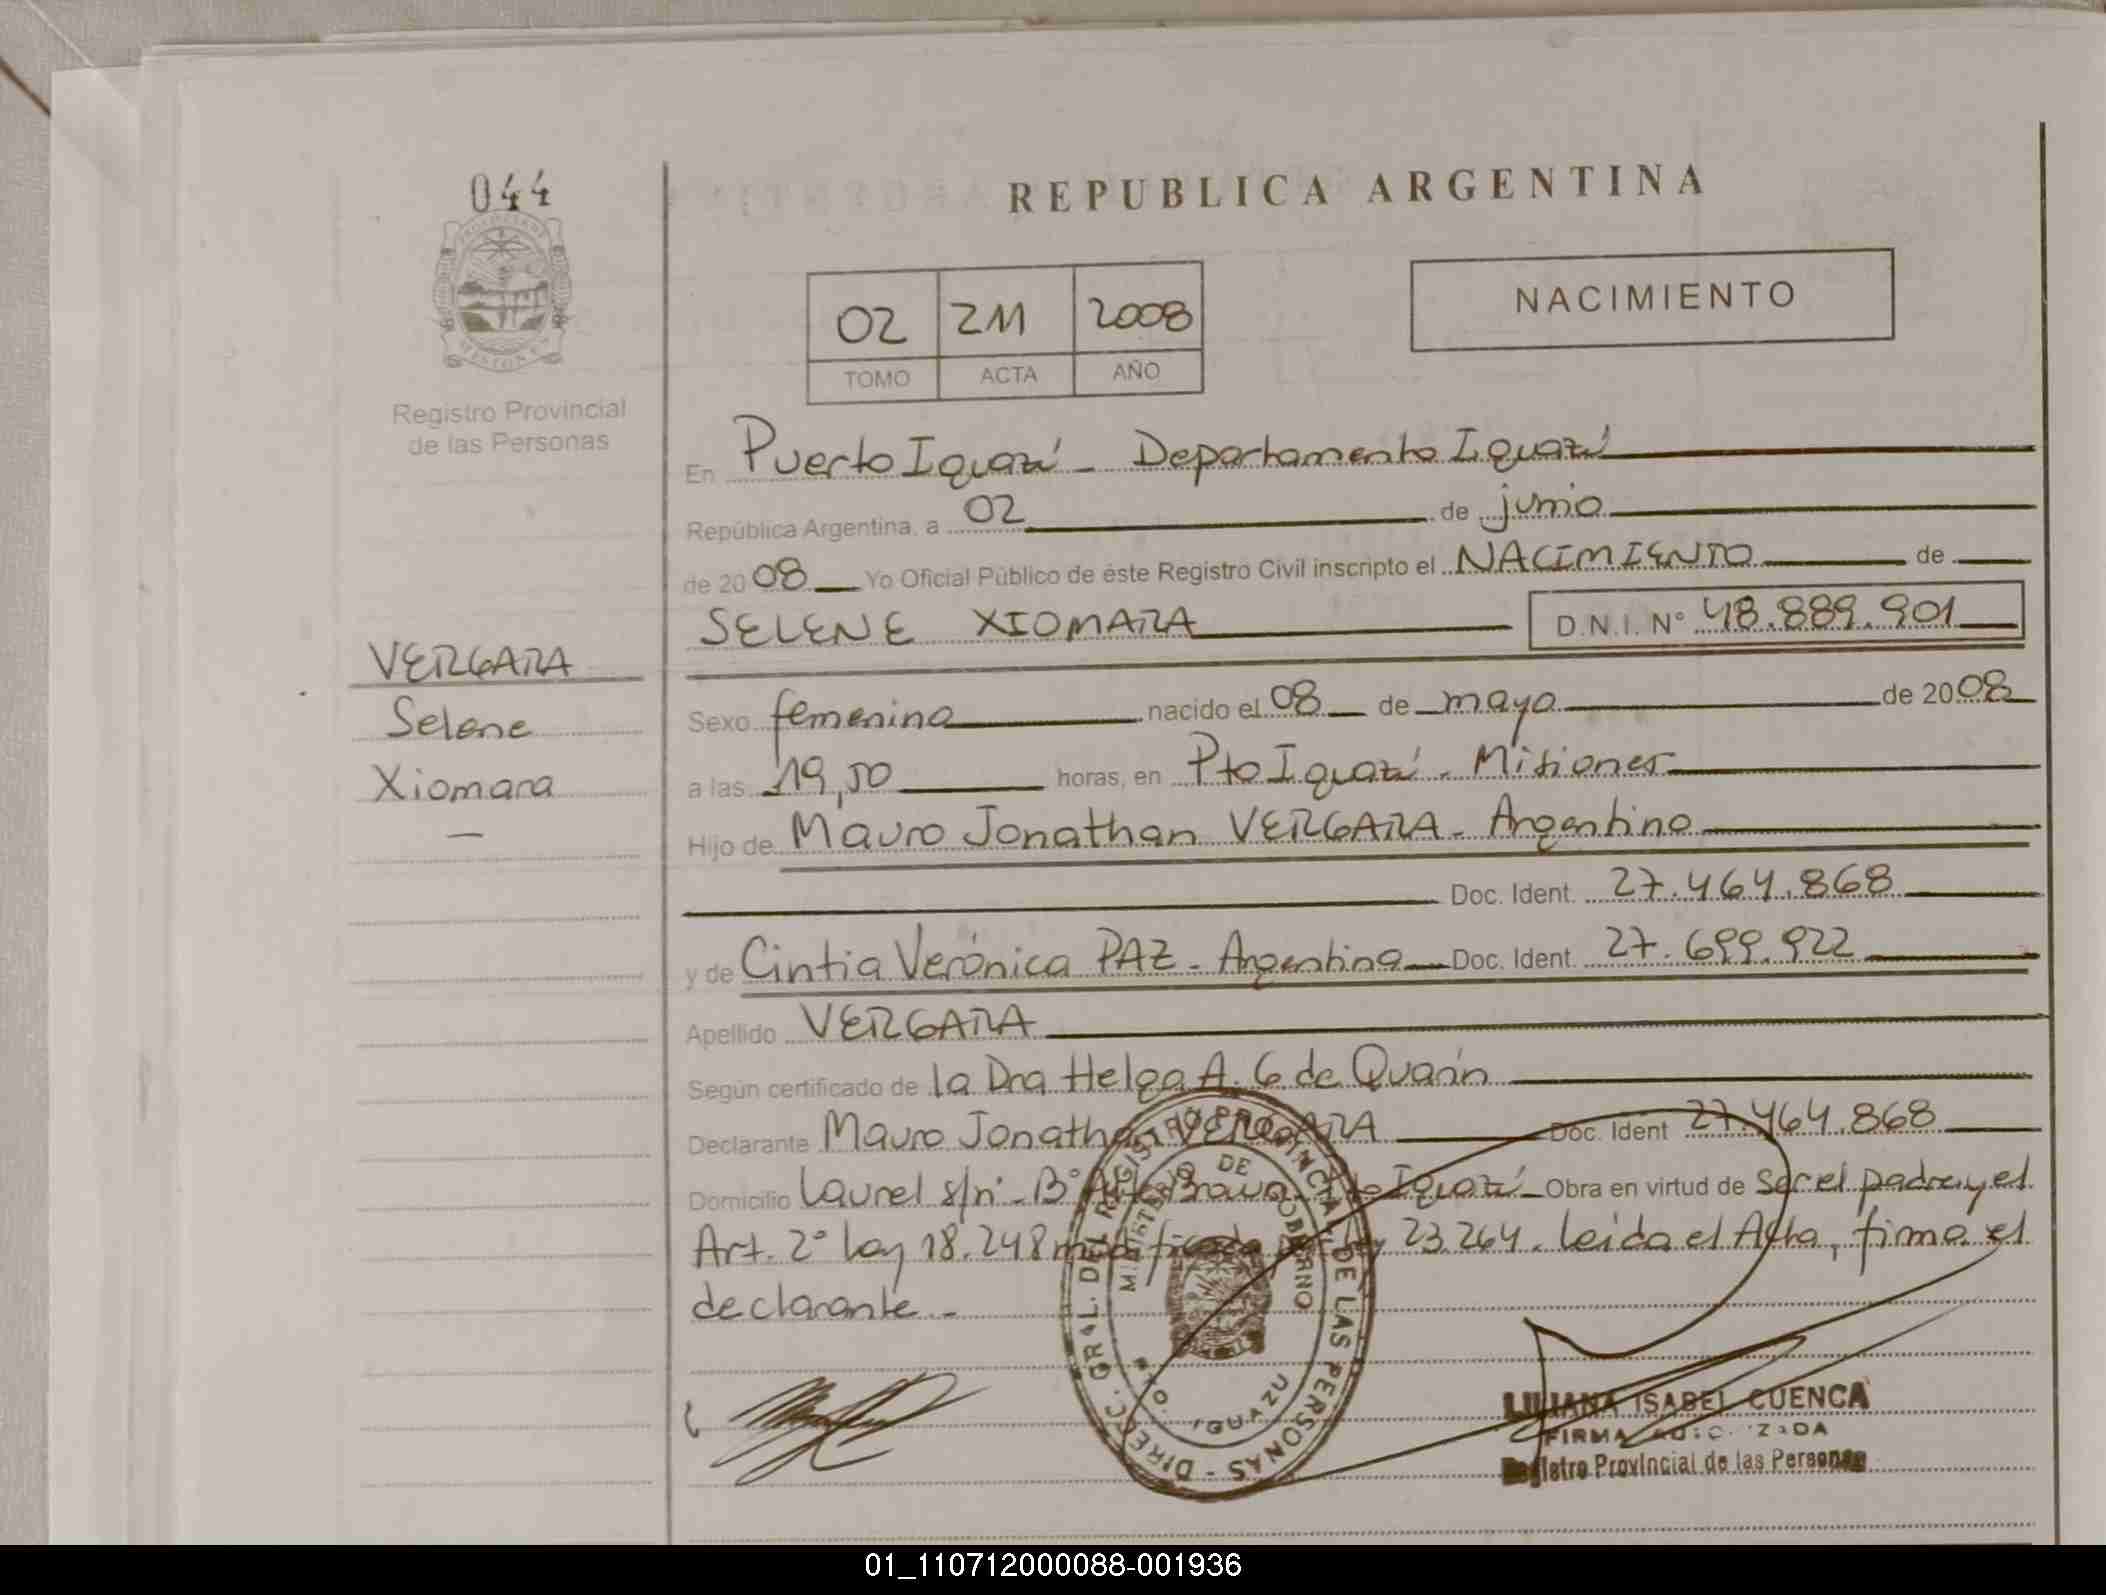 044
REPUBLICA ARGENTINA
PROVINCIA DE
MISIONES
Registro Provincial
de las Personas
02 211 2008
TOMO ACTA AÑO
NACIMIENTO
En Puerto Iguazú - Departamento Iguazú
República Argentina, a 02 de junio
de 2008 Yo Oficial Público de éste Registro Civil inscripto el NACIMIENTO de
SELENE XIOMARA D.N.I. Nº 48.889.901
VERGARA
Selene
Xiomara
Sexo femenino nacido el 08 de mayo de 2008
a las 19,50 horas, en Pto Iguazú - Misiones
Hijo de Mauro Jonathan VERGARA - Argentino
Doc. Ident. 27.464.868
y de Cintia Verónica PAZ - Argentina Doc. Ident. 27.699.922
Apellido VERGARA
Según certificado de la Dra Helga A. G de Quarín
Declarante Mauro Jonathan VERGARA Doc. Ident 27.464.868
Domicilio Laurel s/nº - Bº Alte Brown - Pto Iguazú - Obra en virtud de Ser el padre y el
Art. 2º Ley 18.248 modificado por Ley 23.264. Leída el Acta, firma el
declarante -
DIRECC. GRAL. DEL REGISTRO PROVINCIAL DE LAS PERSONAS -
MINISTERIO DE GOBIERNO
PTO. IGUAZU
LILIANA ISABEL CUENCA
FIRMA AUTORIZADA
Registro Provincial de las Personas
01_110712000088-001936